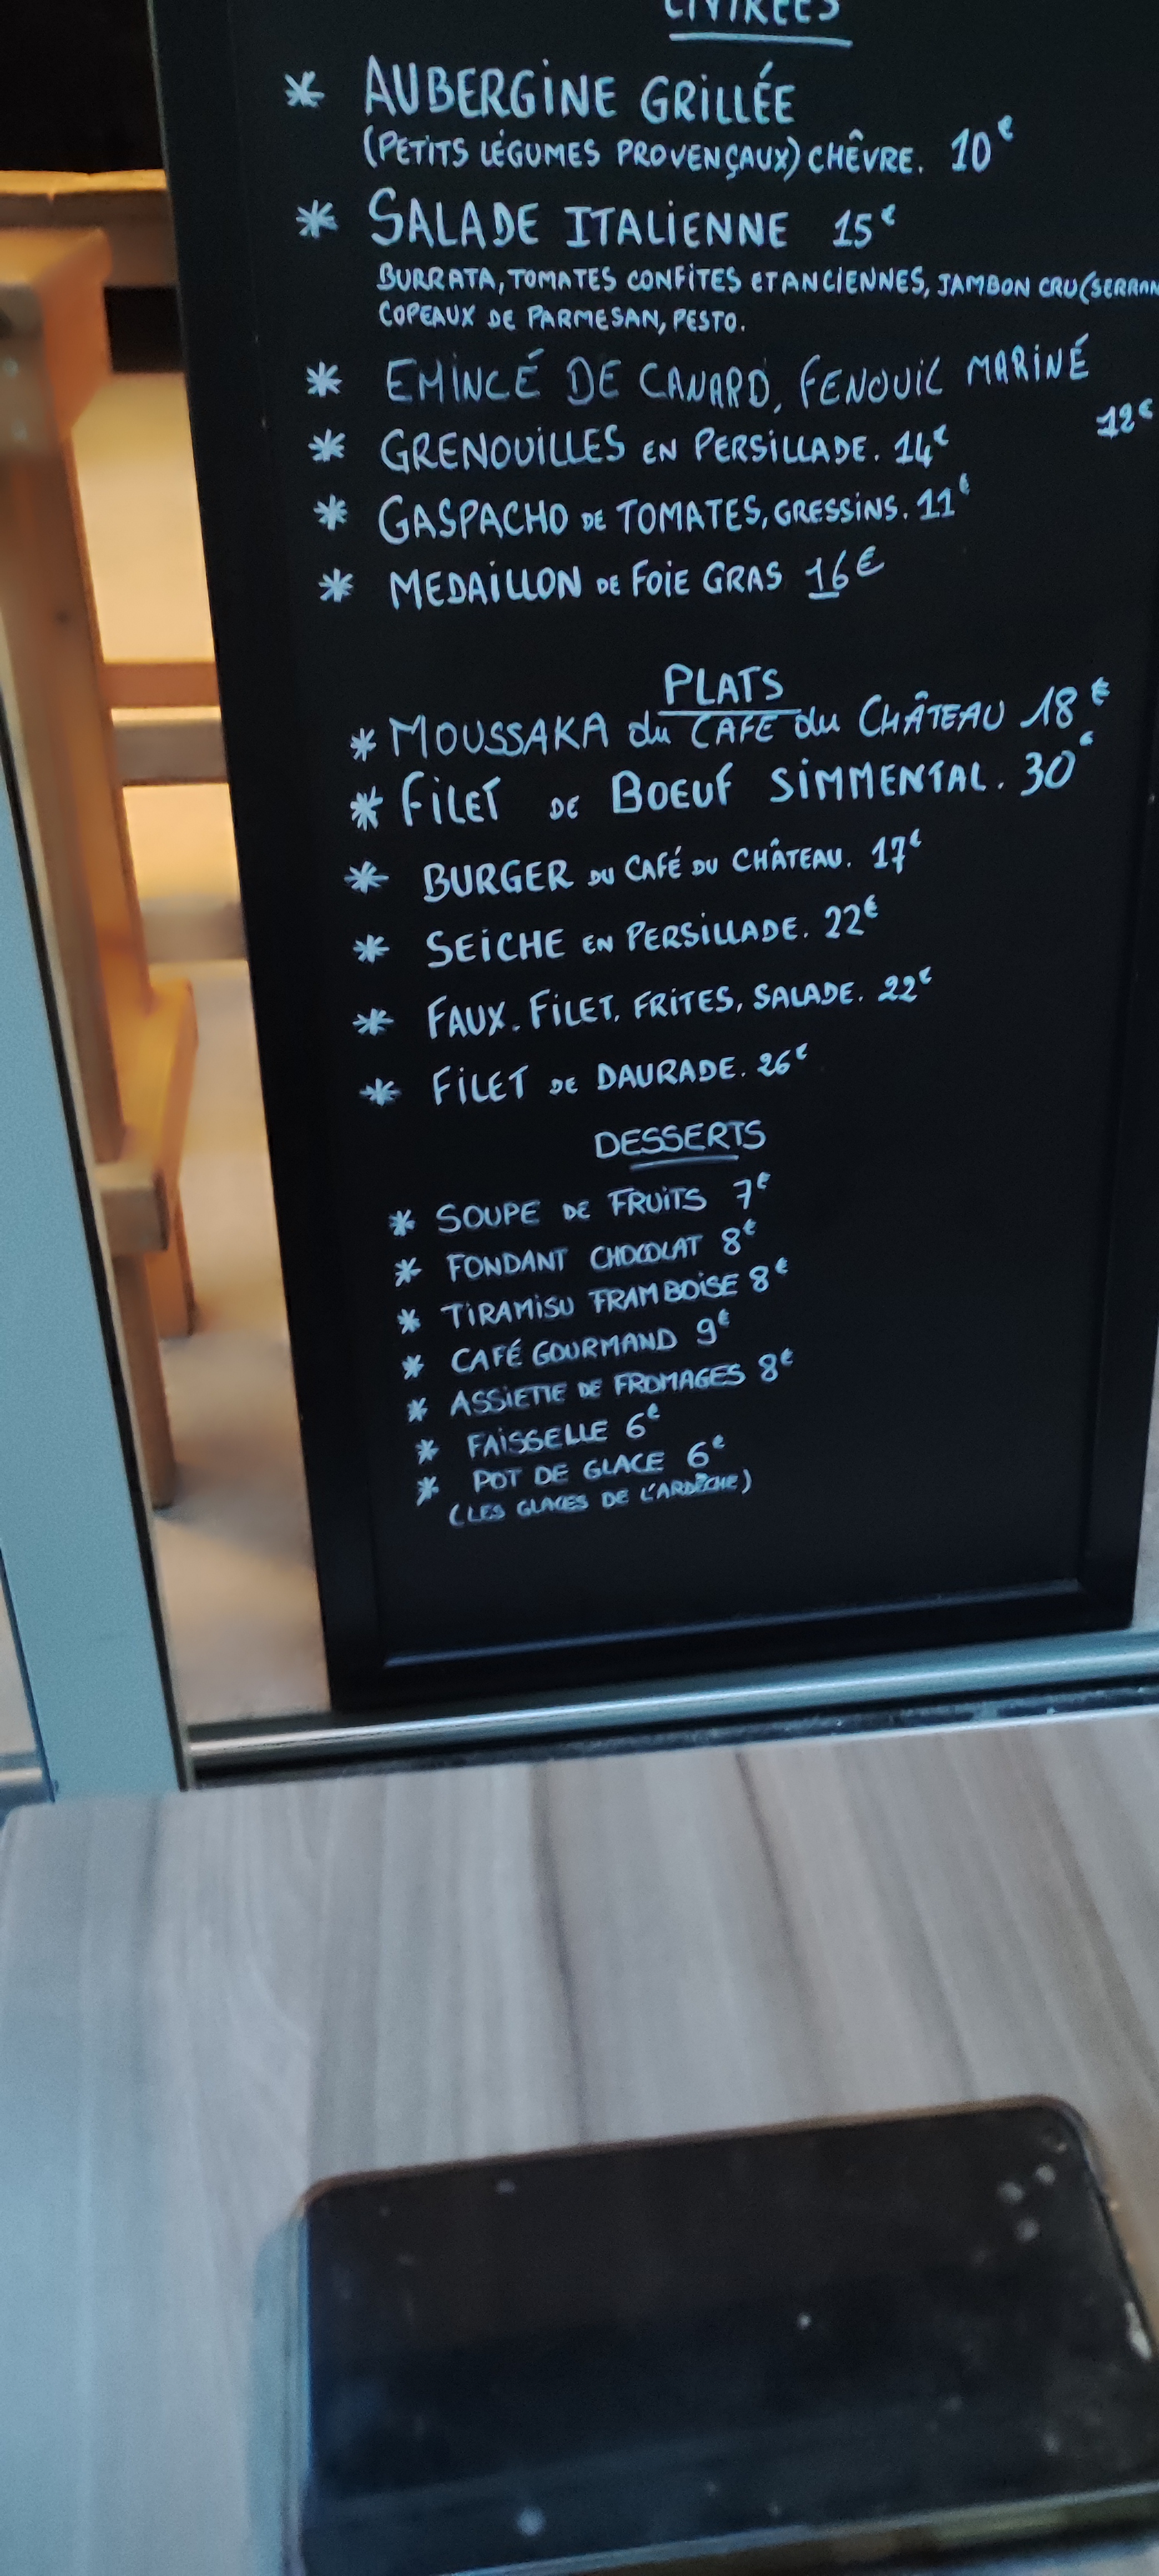 ENTRÉES
* AUBERGINE GRILLÉE
(PETITS LÉGUMES PROVENÇAUX) CHÊVRE. 10€
* SALADE ITALIENNE 15€
BURRATA, TOMATES CONFITES ET ANCIENNES, JAMBON CRU (SERRAN
COPEAUX DE PARMESAN, PESTO.
* EMINCÉ DE CANARD, FENOUIL MARINÉ
12€
* GRENOUILLES EN PERSILLADE. 14€
* GASPACHO DE TOMATES, GRESSINS. 11€
* MEDAILLON DE FOIE GRAS 16€
PLATS
* MOUSSAKA du CAFE du CHÂTEAU 18€
* FILET DE BOEUF SIMMENTAL. 30€
* BURGER DU CAFÉ DU CHÂTEAU. 17€
* SEICHE EN PERSILLADE. 22€
* FAUX. FILET, FRITES, SALADE. 22€
* FILET DE DAURADE. 26€
DESSERTS
* SOUPE DE FRUITS 7€
* FONDANT CHOCOLAT 8€
* TIRAMISU FRAMBOISE 8€
* CAFÉ GOURMAND 9€
* ASSIETTE DE FROMAGES 8€
* FAISSELLE 6€
* POT DE GLACE 6€
(LES GLACES DE L'ARDÈCHE)